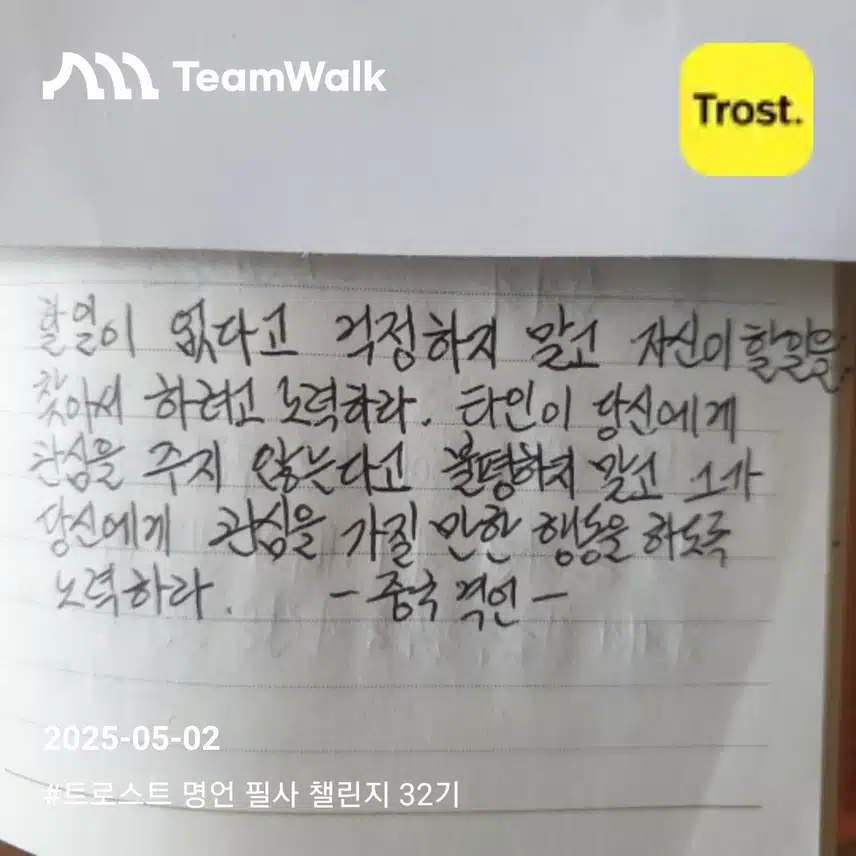 TeamWalk
Trost.
할일이 없다고 걱정하지 말고 자신이 할일을
찾아서 하려고 노력하라. 타인이 당신에게
관심을 주지 않는다고 불평하지 말고 그가
당신에게 관심을 가질 만한 행동을 하도록
노력하라. -중국 격언-
2025-05-02
#트로스트 명언 필사 챌린지 32기